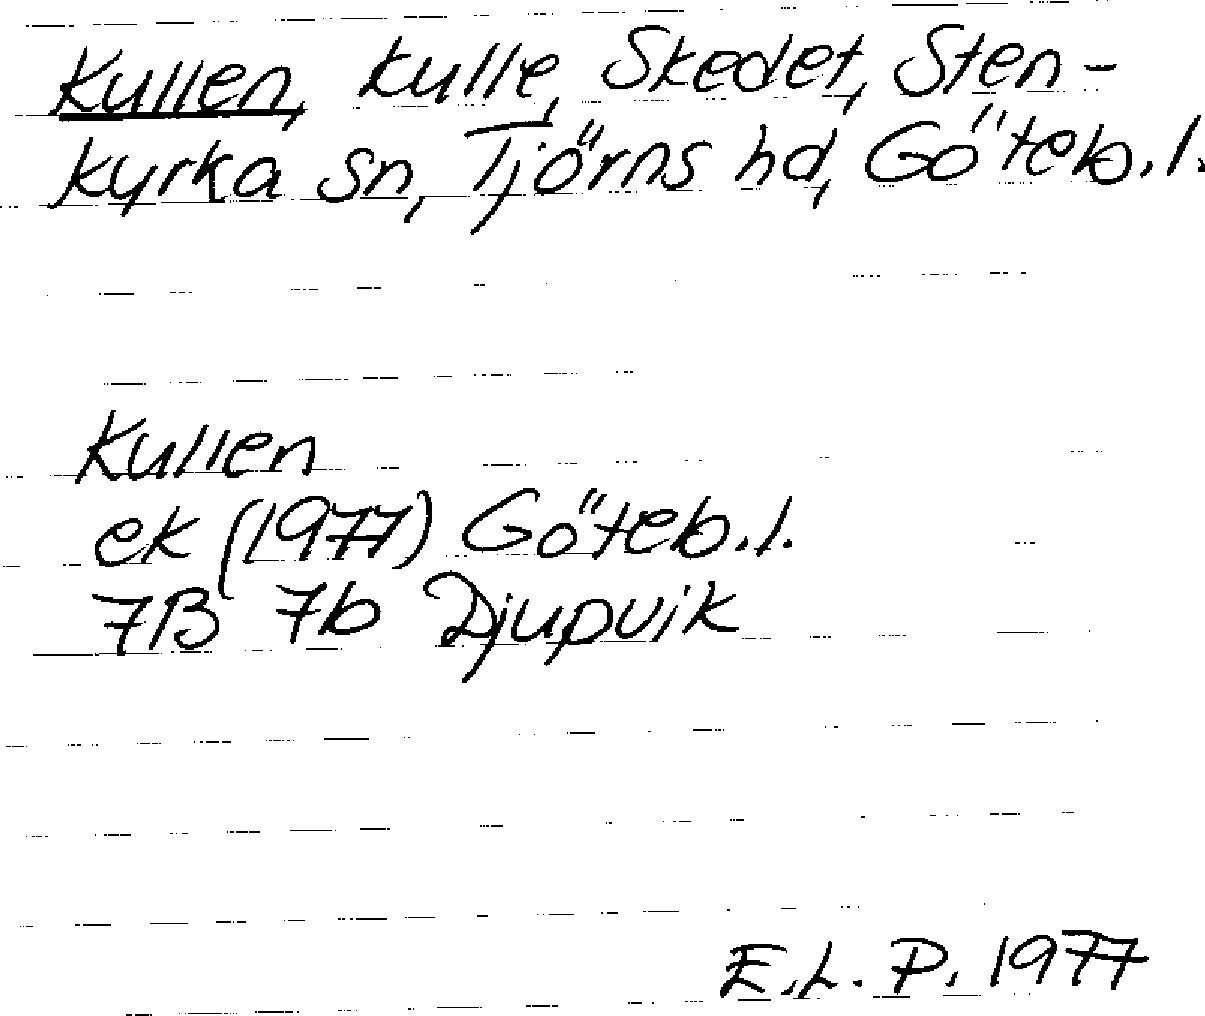 Kullen, kulle, Skedet, Sten-
kyrka sn, Tjörns hd, Göteb.l.
Kullen
ek (1977) Göteb.l.
7B 7b Djupvik
E.L.P. 1977